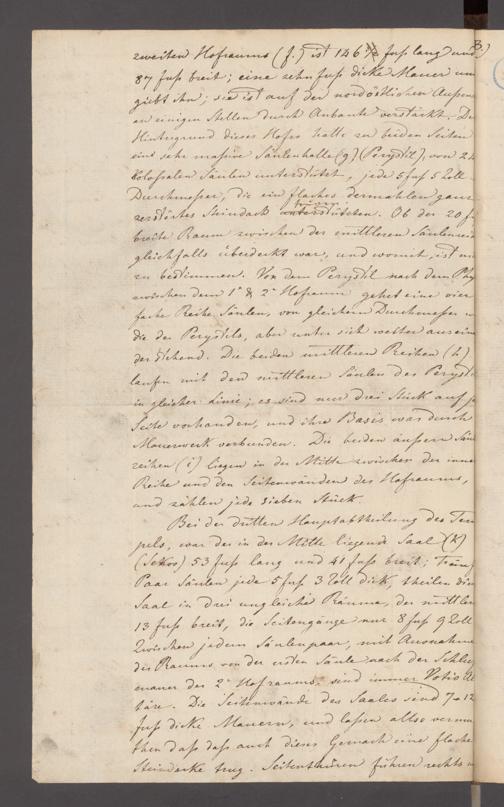 3.)
zweiten Hofraums (f.) ist 146 ½ fuss lang und
87 fuss breit; eine zehn fuss dicke Mauer um
giebt ihn; sie ist auf der nordöstlichen Aussen
an einigen Stellen durch Anbaute verstärkt. De
Hintergrund dieses Hofes hatte zu beiden Seiten
eine sehr massive Säulenhalle (g) (Perystil), von 24
kolossalen Säulen unterstützt, jede 5 fuss 5 Zoll
Durchmesser, die ein flaches dermahlen ganz
zerstörtes Steindach unterstützten. Ob der 20 f
breite Raum zwischen der mittleren Säulenrei
gleichfalls überdeckt war, und womit, ist un
zu bestimmen. Von dem Perystil nach dem
zwischen dem 1ⁿ & 2ⁿ Hofraum gehet eine vier
fache Reihe Säulen, von gleichem Durchmesser
die des Perystils, aber unter sich weiter ausein
der stehend. Die beiden mittleren Reihen (h)
laufen mit den mittleren Säulen des Peryst
in gleicher Linie; es sind nur drei Stück auf j
Seite vorhanden, und ihre Basis war durch
Mauerwerk verbunden. Die beiden äussern Säu
reihen (i) liegen in der Mitte zwischen der inne
Reihe und den Seitenwänden des Hofraums,
und zählen jede sieben Stück.
Bei der dritten Hauptabtheilung des Tem
pels, war der in der Mitte liegende Saal (k)
(Sekos) 53 fuss lang und 41 fuss breit;
Paar Säulen jede 5 fuss 3 Zoll dick, theilen die
Saal in drei ungleiche Räume, der mittlere
13 fuss breit, die Seitengänge nur 8 fuss 9 Zoll
Zwischen jedem Säulenpaar, mit Ausnahme
des Raums von der ersten Säule nach der Schlus
mauer des 2ⁿ Hofraums, sind immer Votio Al
täre. Die Seitenwände des Saales sind 7 a 12
fuss dicke Mauern, und lassen also vermu
then dass dass auch dieses Gemach eine flache
Steindecke trug. Seitenthüren führen rechts